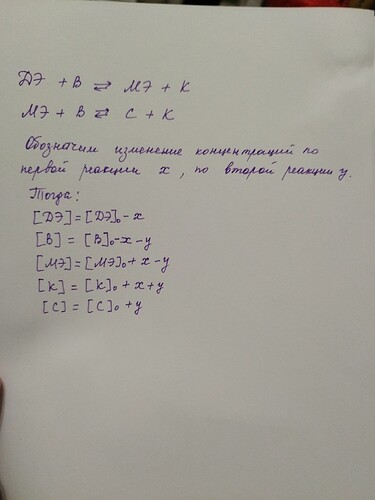 ДЭ + В ⇄ МЭ + К
МЭ + В ⇄ С + К
Обозначим изменение концентраций по
первой реакции x, по второй реакции y.
Тогда:
[ДЭ]=[ДЭ]₀-x
[В] = [В]₀-x-y
[МЭ]=[МЭ]₀+x-y
[К] = [К]₀+x+y
[С] = [С]₀+y